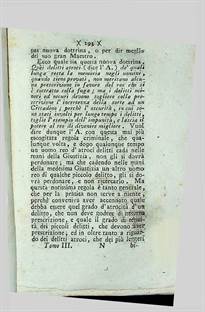 X 193 X
sua nuova dottrina, o per dir meglio
del suo gran Maestro.
Ecco qual sia questa nuova dottrina.
Quei delitti atroci (dice l'A.) de' quali
lunga resta la memoria negli uomini,
quando sieno provati, non meritano alcuna
prescrizione in favore del reo che si
è sottratto colla fuga; ma i delitti minori
ed oscuri devono togliere colla prescrizione
l'incertezza della sorte ad un
Cittadino; perchè l'oscurità, in cui sono
stati involti per lungo tempo i delitti,
toglie l'esempio dell'impunità, e lascia il
potere al reo di divenire migliore. Vuol
dire dunque l'A. con questa mai più
escogitata regola criminale, che qualunque
volta, e dopo qualunque tempo
un uomo reo d'atroci delitti cada nelle
mani della Giustizia, non gli si dovrà
perdonare, ma che cadendo nelle mani
della medesima Giustizia un altro uomo
reo di qualche piccolo delitto, gli si dovrà
perdonare, e non ricercarlo. Ma
questa novissima regola è tanto generale,
che per la prima non serve a niente,
perchè converrà aver accennato quale
debba essere quel grado d'atrocità d'un
delitto, che non deve godere di nessuna
prescrizione, e quale il grado di
dei piccoli delitti, che devono aver
prescrizione, ed in oltre tanto a riguardo
dei delitti atroci, che dei più leggeri
Tomo III. N bi-